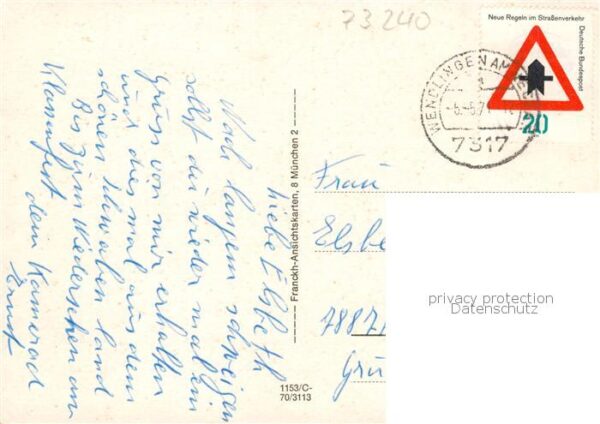 73240
Neue Regeln im Straßenverkehr
Deutsche Bundespost
20
WENDLINGEN AM
-6.-5.71
7317
Liebe Elsbeth
Nach langem schweigen
sollst du wieder mal ein
Gruss von mir erhalten
und diesmal aus dem
schönen Schwabenland
Bis zum Wiedersehen am
Klassenfest
dein Kamerad
Ernst
Franckh-Ansichtskarten, 8 München 2
1153/C-
70/3113
Frau
Elsbe
7887
privacy protection
Datenschutz